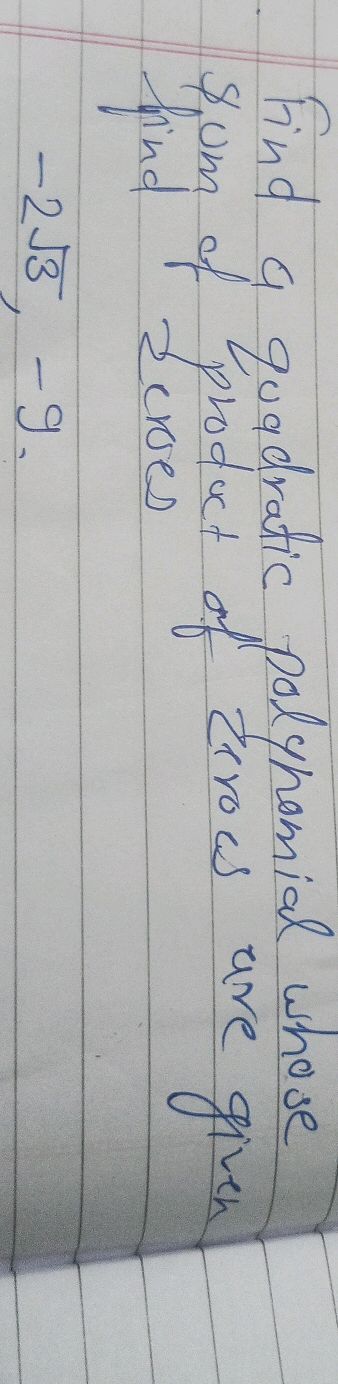 Find a quadratic polynomial whose
sum of product of zeroes are given
find zeroes
-2√3, -9.